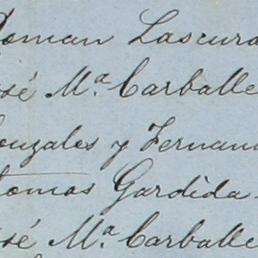 Roman Lascura
sé Mª Carballe
onzales y Fernan
tomas Gardida
sé Mª Carballe